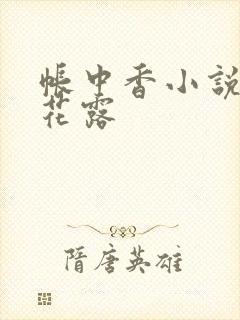 帳中香小說
花露
隋唐英雄